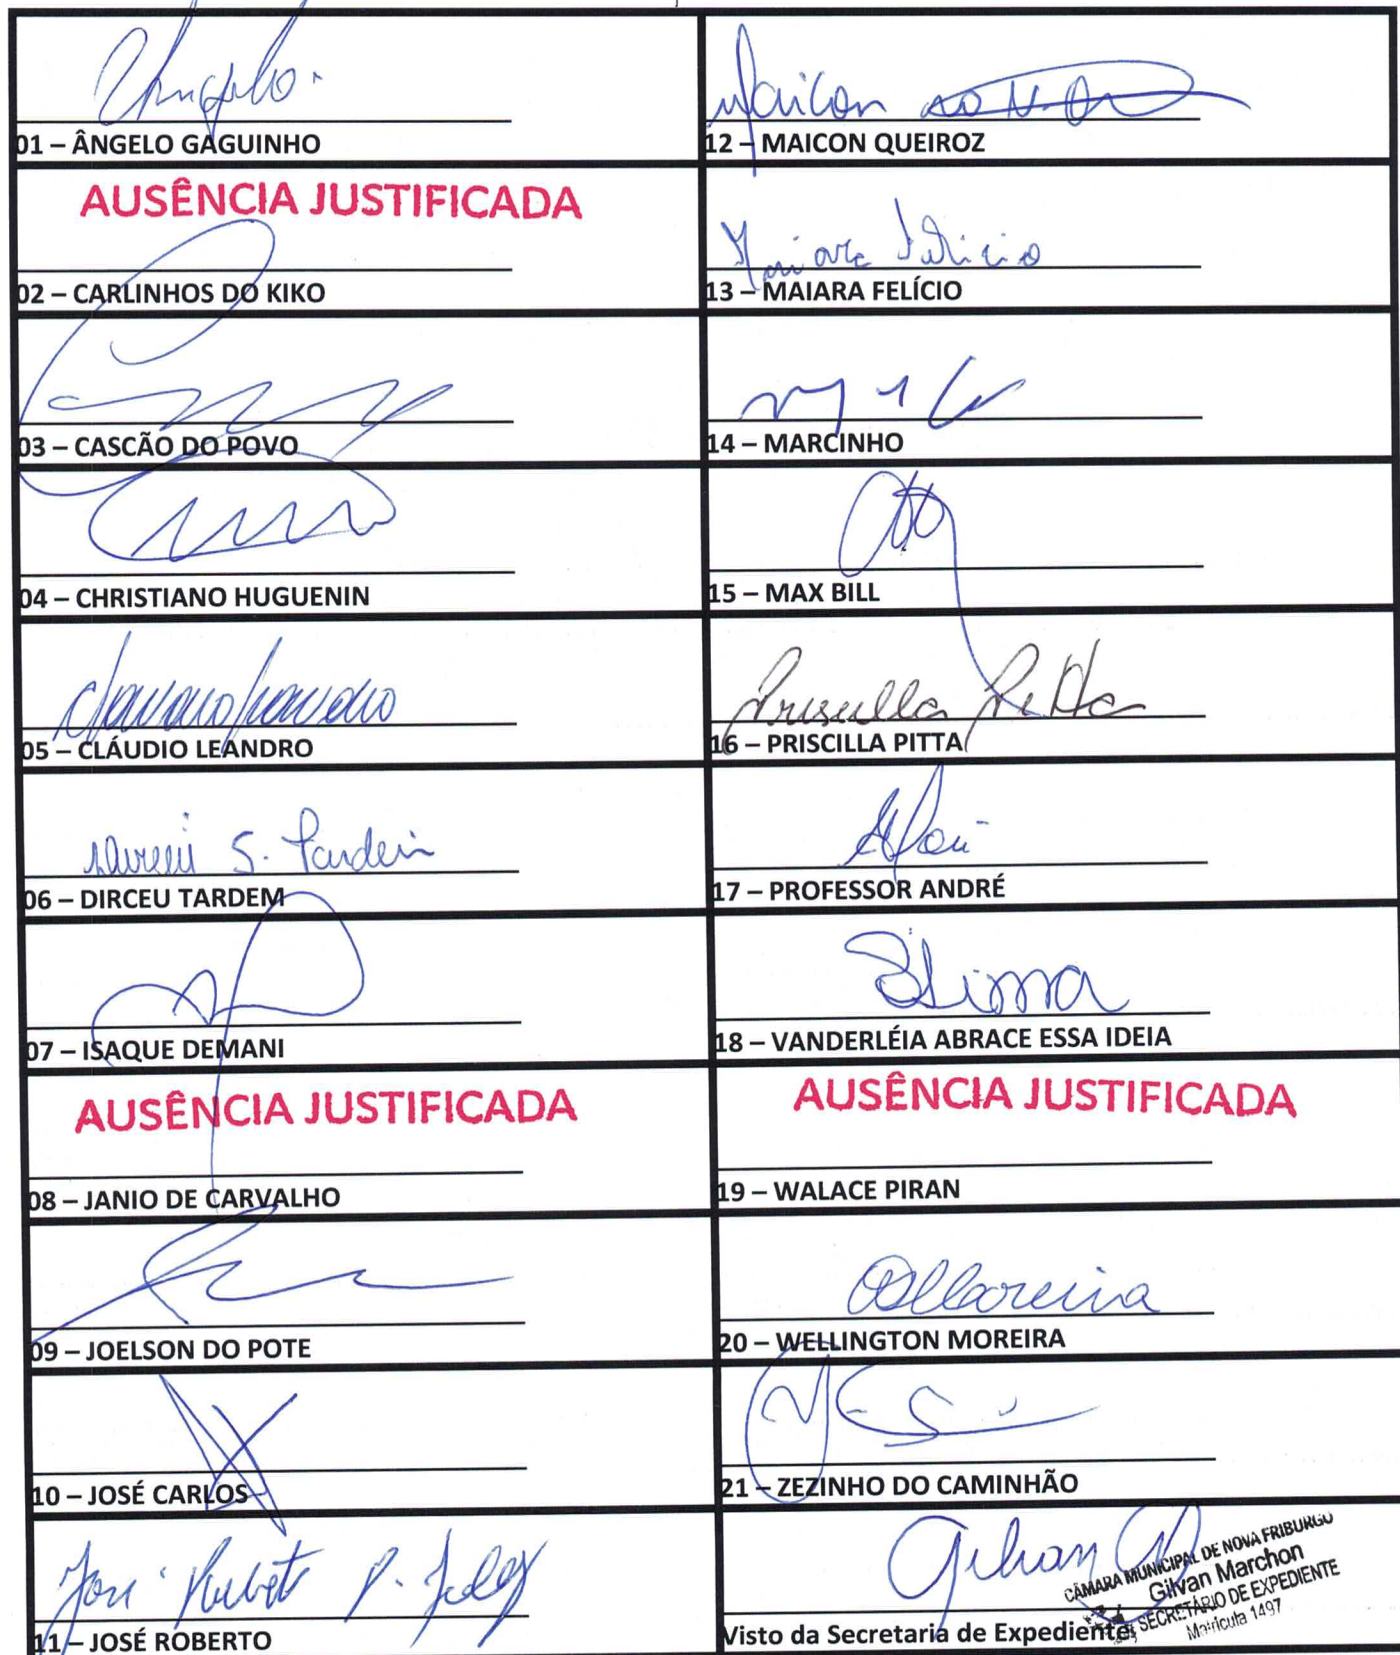 Ângelo
01 – ÂNGELO GAGUINHO
AUSÊNCIA JUSTIFICADA
02 – CARLINHOS DO KIKO
03 – CASCÃO DO POVO
04 – CHRISTIANO HUGUENIN
05 – CLÁUDIO LEANDRO
Dirceu S. Tardem
06 – DIRCEU TARDEM
07 – ISAQUE DEMANI
AUSÊNCIA JUSTIFICADA
08 – JANIO DE CARVALHO
09 – JOELSON DO POTE
10 – JOSÉ CARLOS
José Roberto P. Folly
11 – JOSÉ ROBERTO
Maicon
12 – MAICON QUEIROZ
Maiara Felicio
13 – MAIARA FELÍCIO
14 – MARCINHO
15 – MAX BILL
Priscilla Pitta
16 – PRISCILLA PITTA
17 – PROFESSOR ANDRÉ
Lima
18 – VANDERLÉIA ABRACE ESSA IDEIA
AUSÊNCIA JUSTIFICADA
19 – WALACE PIRAN
20 – WELLINGTON MOREIRA
21 – ZEZINHO DO CAMINHÃO
Gilvan
CÂMARA MUNICIPAL DE NOVA FRIBURGO
Gilvan Marchon
SECRETÁRIO DE EXPEDIENTE
Matrícula 1497
Visto da Secretaria de Expediente